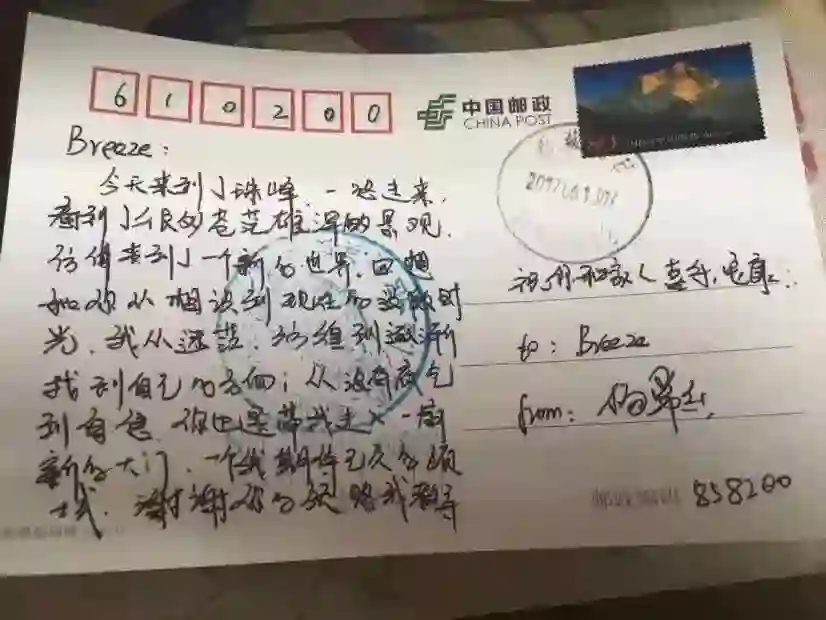 610200
中国邮政
CHINA POST
Breeze:
今天来到了珠峰,一路走来,
看到了不同的苍茫雄浑的景观,
仿佛来到了一个新的世界,回想
和你从相识到现在的时
光,我从迷茫、到逐渐
找到自己的方向;从没有底气
到自信,你也是带我走入一扇
新的大门,一个我期待已久的领
域,谢谢你的领路和
祝你和家人喜乐,安康
to: Breeze
from:
邮政编码 858200